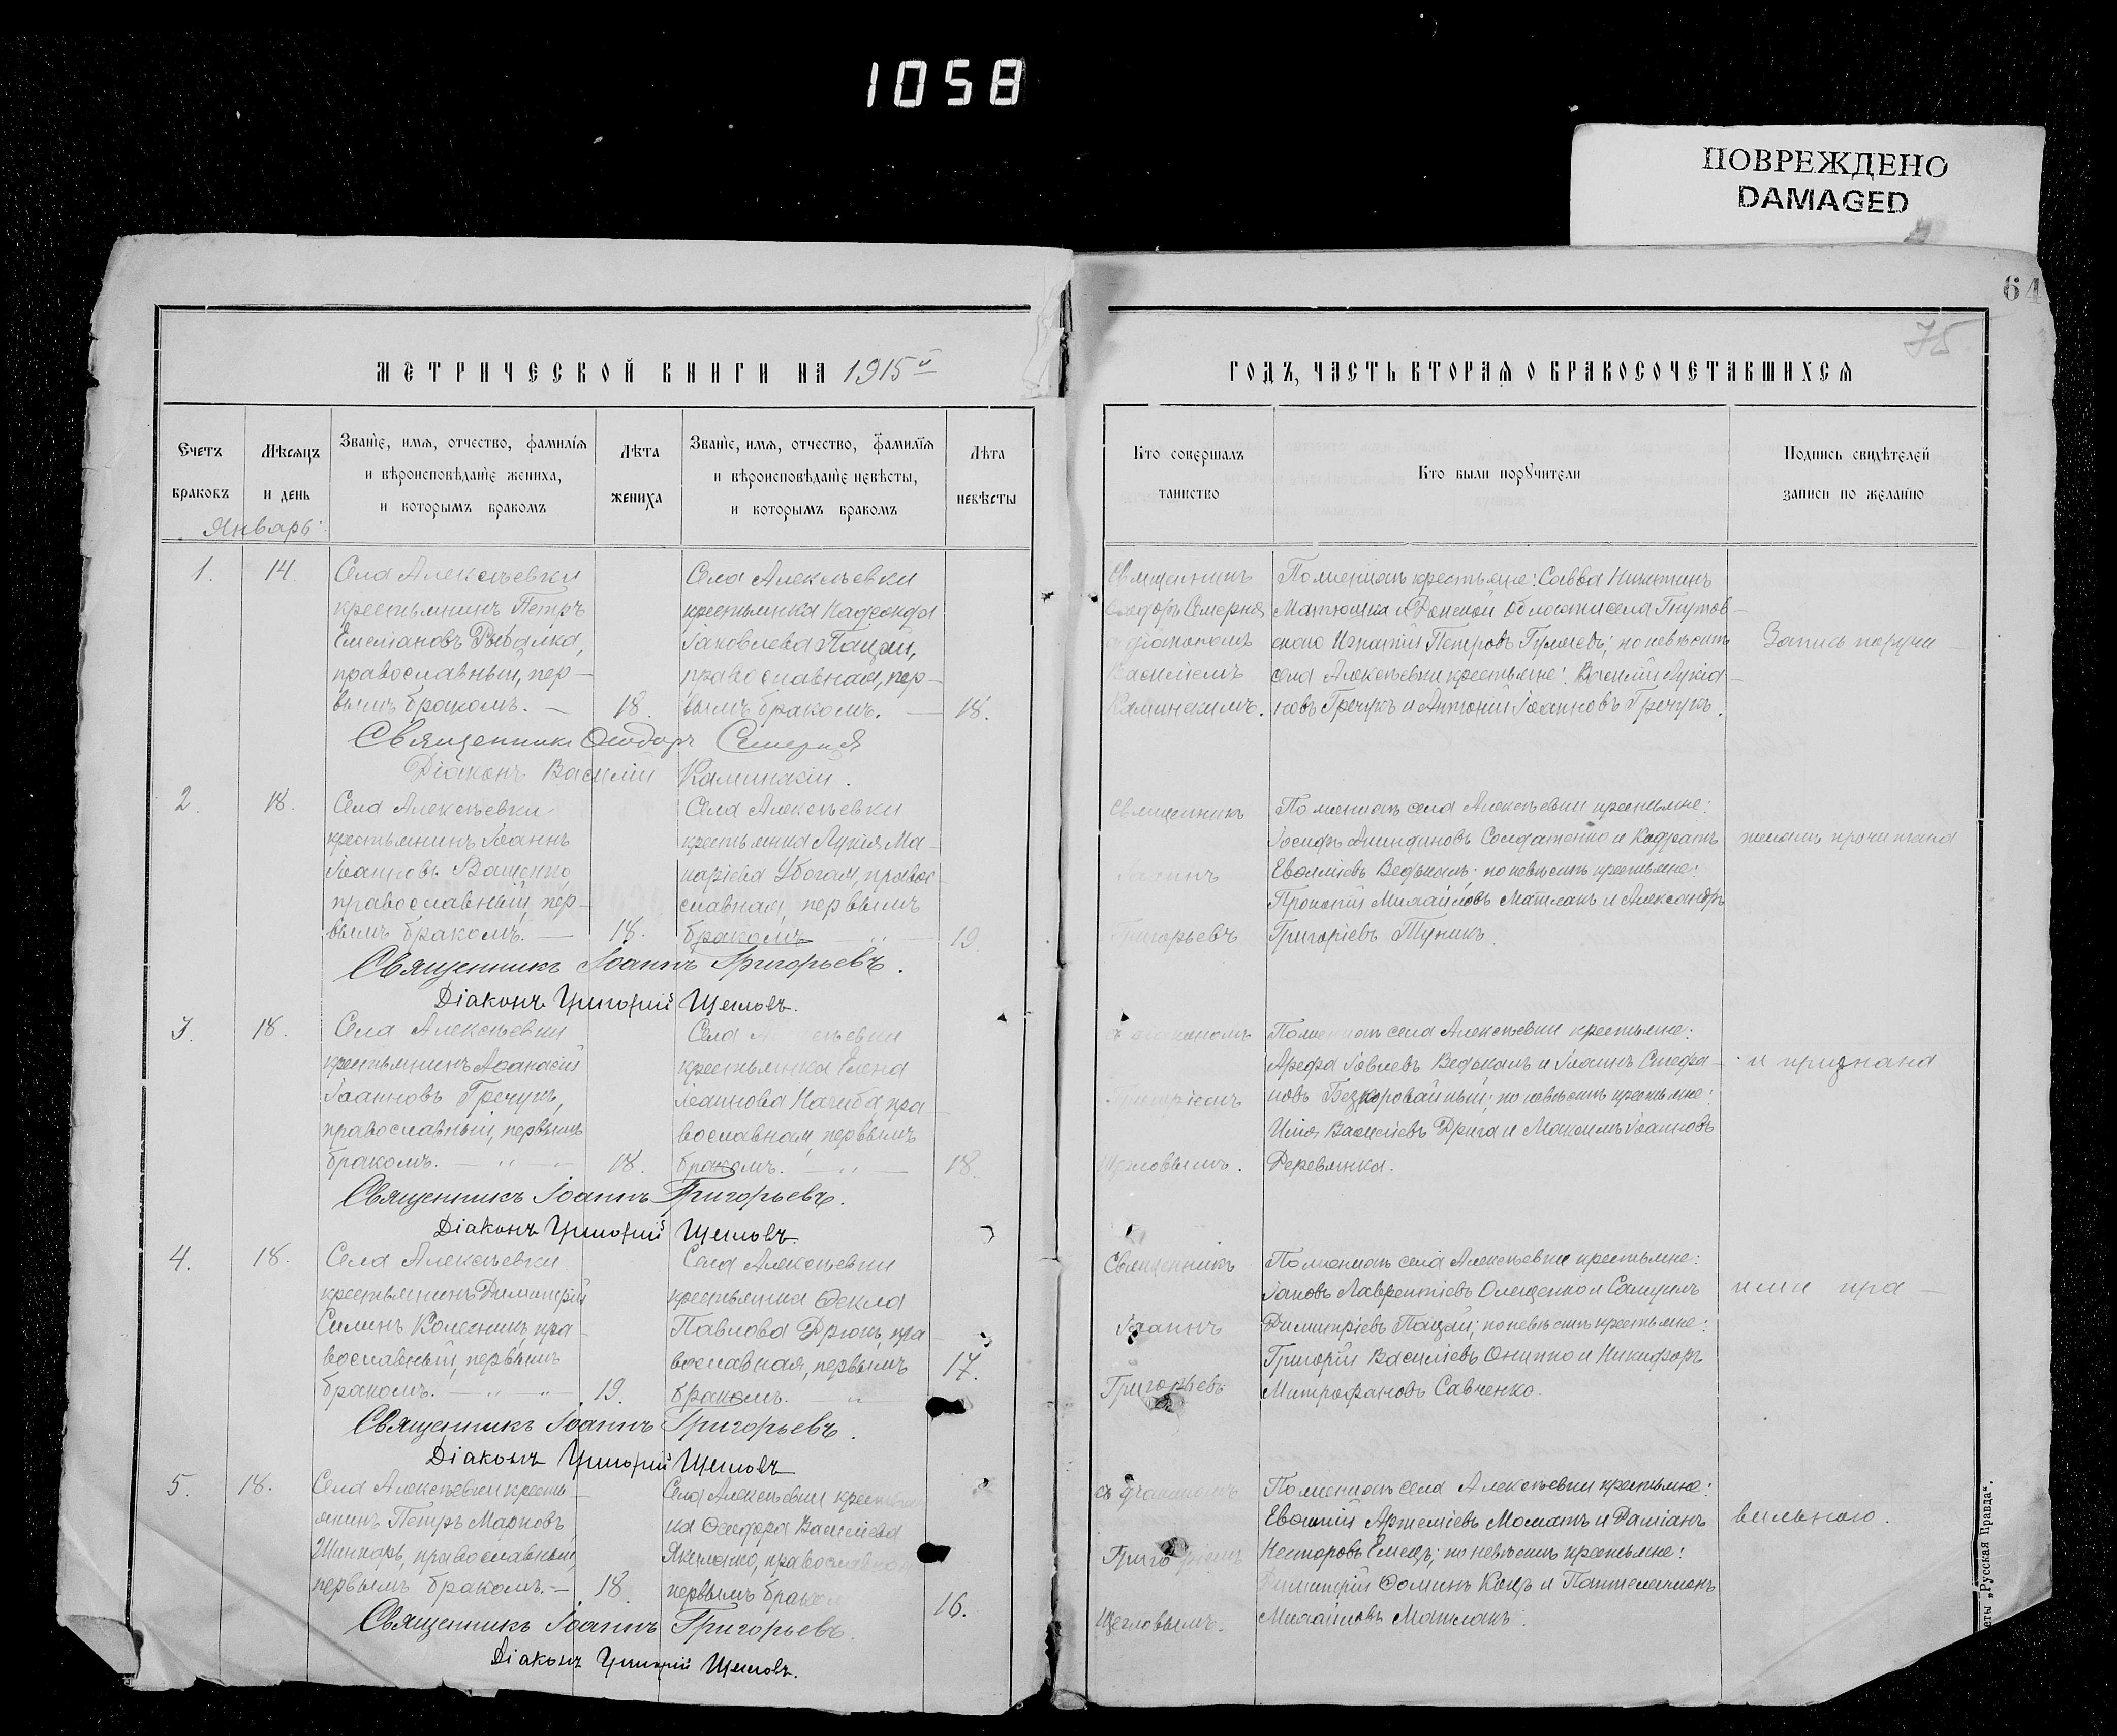 1058
ПОВРЕЖДЕНО
DAMAGED
64
75
МЕТРИЧЕСКОЙ КНИГИ НА 1915й
ГОДЪ, ЧАСТЬ ВТОРАЯ О БРАКОСОЧЕТАВШИХСЯ
Счетъ браковъ
Мѣсяцъ и день
Званіе, имя, отчество, фамилія и вѣроисповѣданіе жениха, и которымъ бракомъ
Лѣта жениха
Званіе, имя, отчество, фамилія и вѣроисповѣданіе невѣсты, и которымъ бракомъ
Лѣта невѣсты
Кто совершалъ таинство
Кто были порꙋчители
Подпись свидѣтелей записи по желанію
Январь
1.
14.
Села Алексѣевки
крестьянинъ Петръ
Емеліановъ Рыбалка,
православный, пер-
вымъ бракомъ.
18.
Села Алексѣевки
крестьянка
Іаковлева Пацай,
православная, пер-
вымъ бракомъ.
18.
Священникъ
Ѳеодоръ Семерня
діакономъ
Василіемъ
Каминскимъ.
По женихѣ крестьяне: Савва Никитинъ
Матюшка и Донской области села
скаго Игнатій Петровъ по невѣстѣ
села Алексѣевки крестьяне: Василій Лукіа-
новъ Гречукъ и Антоній Іоанновъ Гречукъ.
Запись поручи-
Священникъ Ѳеодоръ Семерня
Діаконъ Василій Каминскій.
2.
18.
Села Алексѣевки
крестьянинъ Іоаннъ
Іоанновъ Ващенко
православный, пер-
вымъ бракомъ.
18.
Села Алексѣевки
крестьянка Лукія Ма-
каріева Убогая, правос-
славная, первымъ
бракомъ
19.
Священникъ
Іоаннъ
Григорьевъ
По женихѣ села Алексѣевки крестьяне:
Іосифъ Солдатенко и Кодратъ
Евѳиміевъ Ведькалъ; по невѣстѣ крестьяне:
Прокопій Михайловъ Матлакъ и Александръ
Григоріевъ Туникъ.
телямъ прочитана
Священникъ Іоаннъ Григорьевъ.
Діаконъ Григорій Щегловъ.
3.
18.
Села Алексѣевки
крестьянинъ Аѳанасій
Іоанновъ Гречукъ,
православный, первымъ
бракомъ.
18.
Села Алексѣевки
крестьянка Елена
Іоаннова Нагиба, пра-
вославная, первымъ
бракомъ.
18.
съ діакономъ
Григоріемъ
Щегловымъ.
По женихѣ села Алексѣевки крестьяне:
Арефа Іовлевъ Ведькалъ и Іоаннъ Стефа-
новъ Безкоровайный; по невѣстѣ крестьяне:
Илія Василіевъ Дрига и Максимъ Іоанновъ
Деревянка.
и признана
Священникъ Іоаннъ Григорьевъ.
Діаконъ Григорій Щегловъ.
4.
18.
Села Алексѣевки
крестьянинъ Димитрій
Силинъ Колесникъ, пра-
вославный, первымъ
бракомъ.
19.
Села Алексѣевки
крестьянка Ѳекла
Павлова Дрюкъ, пра-
вославная, первымъ
бракомъ.
17.
Священникъ
Іоаннъ
Григорьевъ
По женихѣ села Алексѣевки крестьяне:
Іаковъ Лаврентіевъ Олещенко и Самуилъ
Димитріевъ Пацай; по невѣстѣ крестьяне:
Григорій Василіевъ Онипко и Никифоръ
Митрофановъ Савченко.
ими пра-
Священникъ Іоаннъ Григорьевъ.
Діаконъ Григорій Щегловъ
5.
18.
Села Алексѣевки кресть-
янинъ Петръ Марковъ
Шинкарь, православный,
первымъ бракомъ.
18.
Села Алексѣевки крестьян
ка Ѳеодора Василіева
Якименко, православная
первымъ браком
16.
съ діакономъ
Григоріемъ
Щегловымъ.
По женихѣ села Алексѣевки крестьяне:
Евѳимій Артеміевъ и Даміанъ
Несторовъ Емецъ; по невѣстѣ крестьяне:
Димитрій Ѳоминъ Коцъ и Пантелеимонъ
Михайловъ Матлакъ.
вильною.
Священникъ Іоаннъ Григорьевъ.
Діаконъ Григорій Щегловъ.
„Русская Правда“.